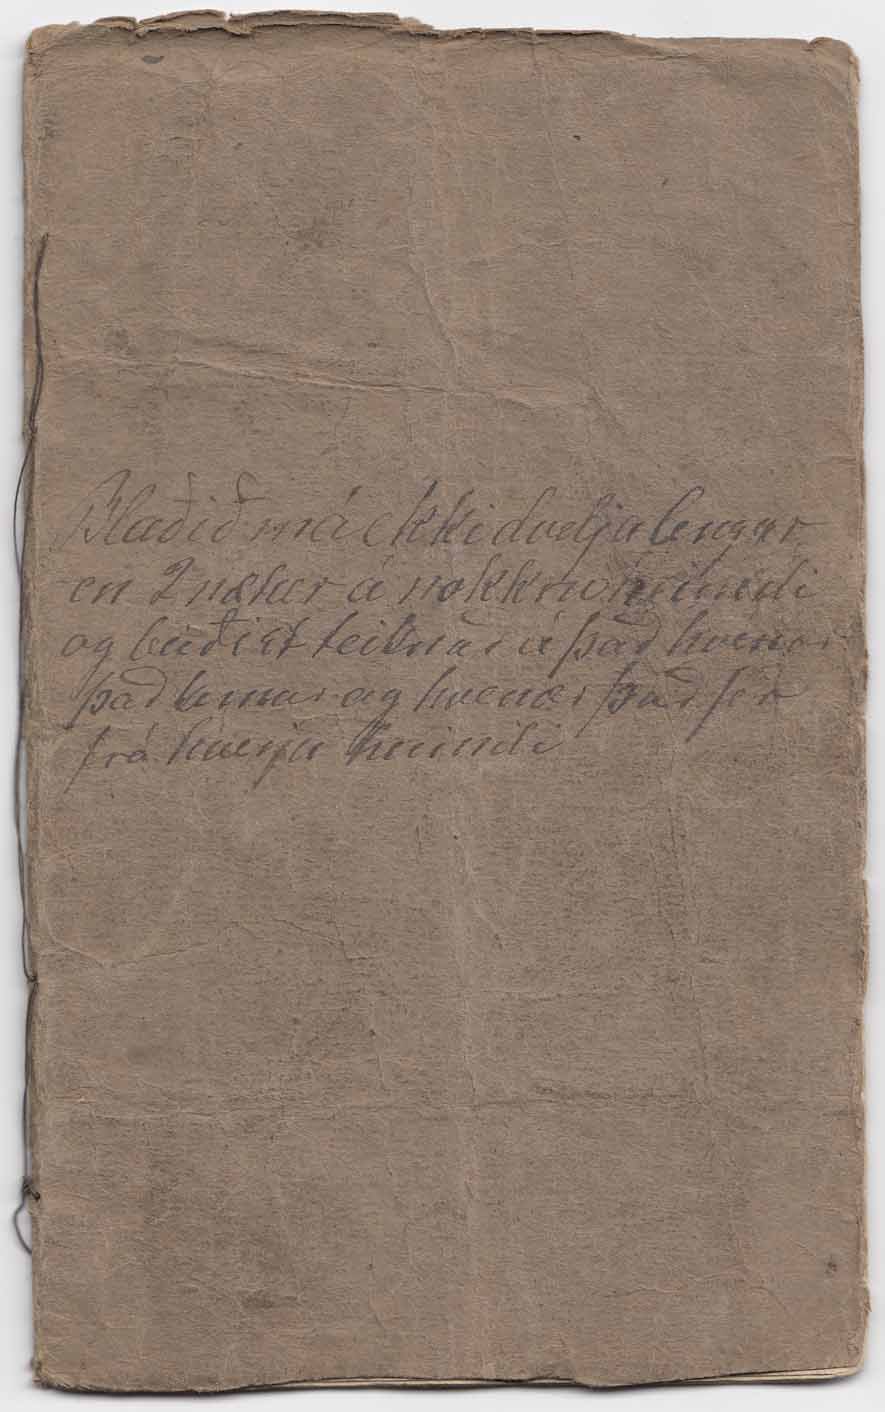 Blaðið má ekki dvelja lengur
en 2 nætur á nokkru heimili
og á það hvenær
það kemur og hvenær það fer
frá hverju heimili